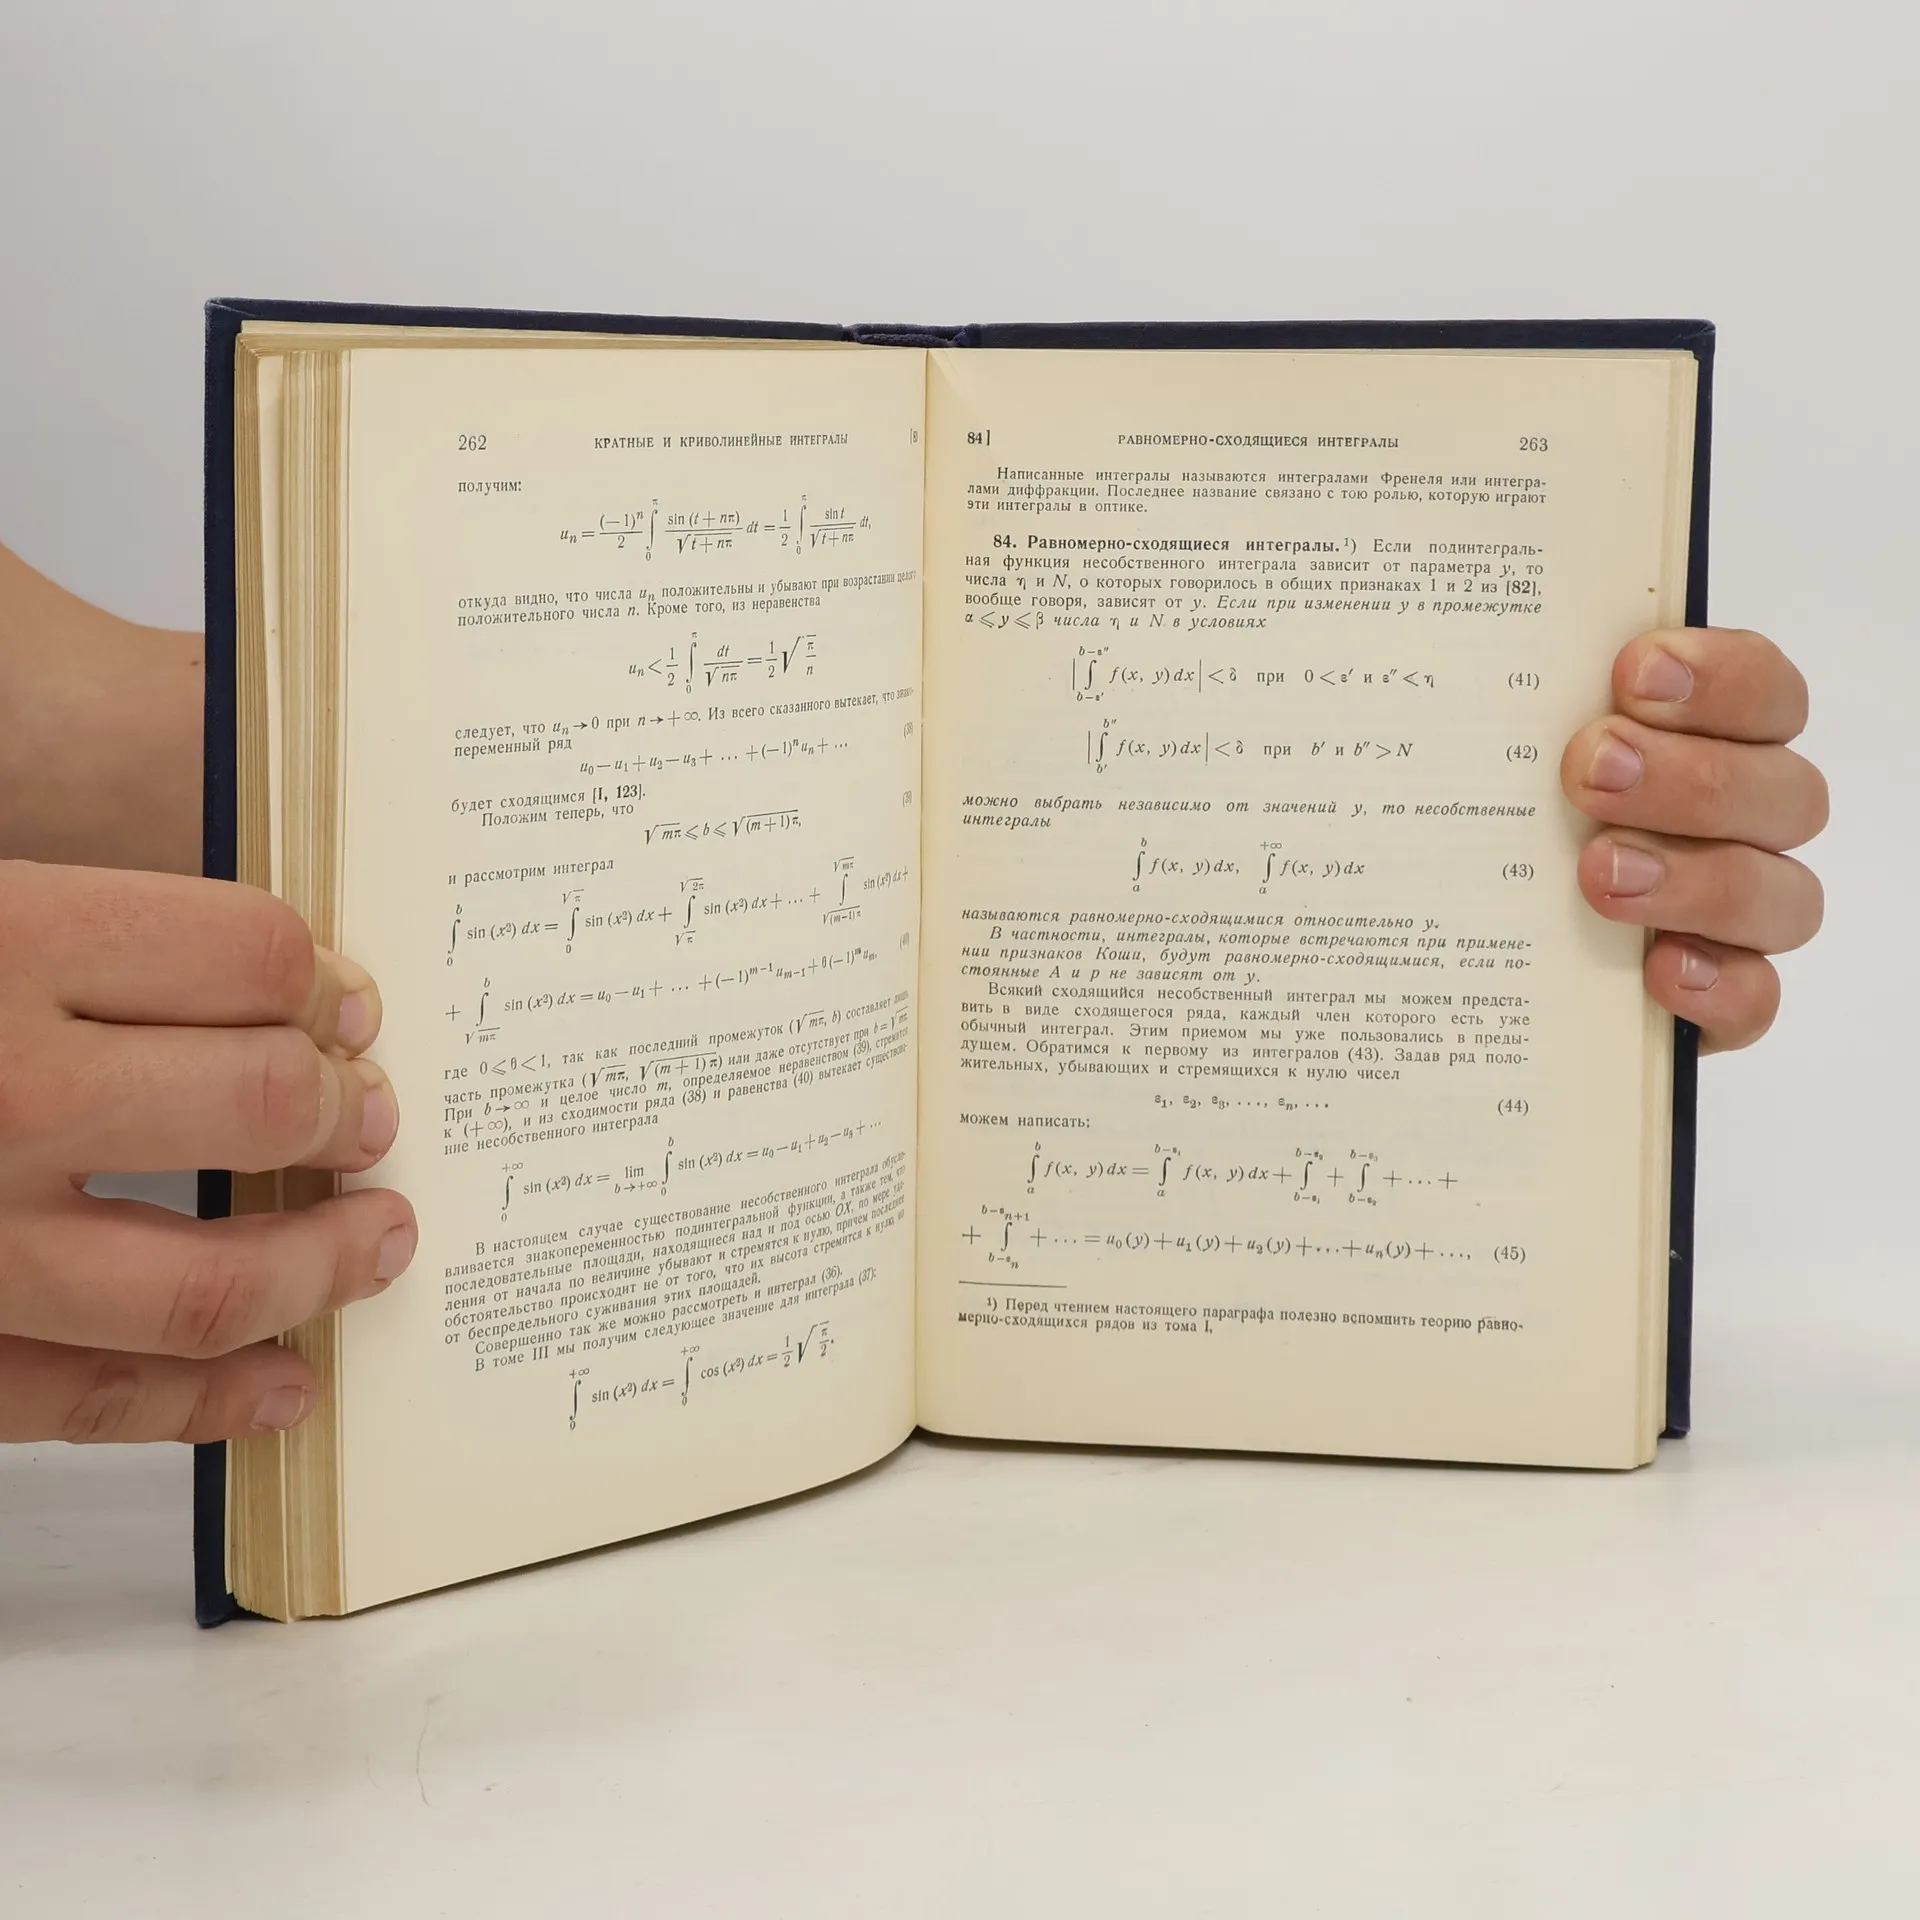 262 КРАТНЫЕ И КРИВОЛИНЕЙНЫЕ ИНТЕГРАЛЫ [8
получим:
uₙ = (−1)ⁿ/2 ∫₀^π sin (t + nπ)/√(t + nπ) dt = 1/2 ∫₀^π sin t/√(t + nπ) dt,
откуда видно, что числа uₙ положительны и убывают при возрастании целого
положительного числа n. Кроме того, из неравенства
uₙ < 1/2 ∫₀^π dt/√(nπ) = 1/2 √(π/n)
следует, что uₙ → 0 при n → +∞. Из всего сказанного вытекает, что знако-
переменный ряд
u₀ − u₁ + u₂ − u₃ + ... + (−1)ⁿ uₙ + ... (38)
будет сходящимся [I, 123].
Положим теперь, что
√(mπ) ⩽ b ⩽ √((m + 1) π), (39)
и рассмотрим интеграл
∫₀^b sin (x²) dx = ∫₀^√π sin (x²) dx + ∫_√π^√2π sin (x²) dx + ... + ∫_√(m−1)π^√mπ sin (x²) dx +
+ ∫_√mπ^b sin (x²) dx = u₀ − u₁ + ... + (−1)^(m−1) u_(m−1) + θ (−1)^m u_m, (40)
где 0 ⩽ θ < 1, так как последний промежуток (√mπ, b) составляет лишь
часть промежутка (√mπ, √(m + 1) π) или даже отсутствует при b = √mπ
При b → ∞ и целое число m, определяемое неравенством (39), стремится
к (+∞), и из сходимости ряда (38) и равенства (40) вытекает существова-
ние несобственного интеграла
∫₀^+∞ sin (x²) dx = lim_(b→+∞) ∫₀^b sin (x²) dx = u₀ − u₁ + u₂ − u₃ + ...
В настоящем случае существование несобственного интеграла обусла-
вливается знакопеременностью подинтегральной функции, а также тем, что
последовательные площади, находящиеся над и под осью OX, по мере уда-
ления от начала по величине убывают и стремятся к нулю, причем последнее
обстоятельство происходит не от того, что их высота стремится к нулю, но
от беспредельного суживания этих площадей.
Совершенно так же можно рассмотреть и интеграл (36).
В томе III мы получим следующее значение для интеграла (37):
∫₀^+∞ sin (x²) dx = ∫₀^+∞ cos (x²) dx = 1/2 √(π/2).
84] РАВНОМЕРНО-СХОДЯЩИЕСЯ ИНТЕГРАЛЫ 263
Написанные интегралы называются интегралами Френеля или интегра-
лами диффракции. Последнее название связано с тою ролью, которую играют
эти интегралы в оптике.
84. Равномерно-сходящиеся интегралы.¹) Если подинтеграль-
ная функция несобственного интеграла зависит от параметра y, то
числа η и N, о которых говорилось в общих признаках 1 и 2 из [82],
вообще говоря, зависят от y. Если при изменении y в промежутке
α ⩽ y ⩽ β числа η и N в условиях
|∫_(b−ε′)^(b−ε″) f(x, y) dx| < δ при 0 < ε′ и ε″ < η (41)
|∫_b′^b″ f(x, y) dx| < δ при b′ и b″ > N (42)
можно выбрать независимо от значений y, то несобственные
интегралы
∫ₐ^b f(x, y) dx, ∫ₐ^+∞ f(x, y) dx (43)
называются равномерно-сходящимися относительно y.
В частности, интегралы, которые встречаются при примене-
нии признаков Коши, будут равномерно-сходящимися, если по-
стоянные A и p не зависят от y.
Всякий сходящийся несобственный интеграл мы можем предста-
вить в виде сходящегося ряда, каждый член которого есть уже
обычный интеграл. Этим приемом мы уже пользовались в преды-
дущем. Обратимся к первому из интегралов (43). Задав ряд поло-
жительных, убывающих и стремящихся к нулю чисел
ε₁, ε₂, ε₃, ..., εₙ, ... (44)
можем написать:
∫ₐ^b f(x, y) dx = ∫ₐ^(b−ε₁) f(x, y) dx + ∫_(b−ε₁)^(b−ε₂) + ∫_(b−ε₂)^(b−ε₃) + ... +
+ ∫_(b−εₙ)^(b−εₙ₊₁) + ... = u₀(y) + u₁(y) + u₂(y) + ... + uₙ(y) + ..., (45)
¹) Перед чтением настоящего параграфа полезно вспомнить теорию равно-
мерно-сходящихся рядов из тома I.